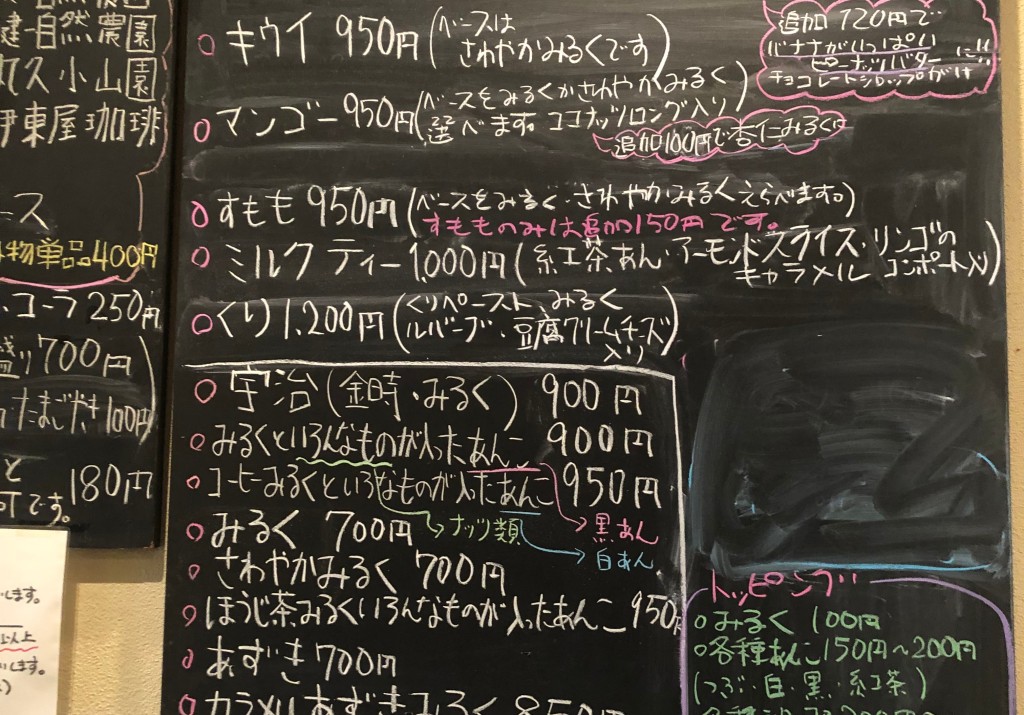 自然農園
健自然農園
丸久小山園
伊東屋珈琲
ース
物単品400円
コーラ250円
盛り700円
たまごやき100円
と
180円
可です。
します。
以上
します。
キウイ 950円(ベースは
さわやかみるくです)
追加120円で
バナナがいっぱい
ピーナッツバター
チョコレートシロップがけ
に!!
マンゴー950円(ベースをみるくかさわやかみるく
選べます。ココナッツロング入り)
追加100円で杏仁みるくに
すもも950円(ベースをみるく・さわやかみるくえらべます。)
すもものみは追加150円です。
ミルクティー1,000円(紅茶あん・アーモンドスライス・リンゴの
キャラメルコンポート入り)
くり1,200円(くりペースト、みるく
ルバーブ・豆腐クリームチーズ
入り)
宇治(金時・みるく) 900円
みるくといろんなものが入ったあんこ 900円
コーヒーみるくといろんなものが入ったあんこ 950円
→ナッツ類
→黒あん
→白あん
みるく 700円
さわやかみるく 700円
ほうじ茶みるくいろんなものが入ったあんこ 950円
あずき700円
カラメルあずきみるく 850円
トッピング
みるく 100円
各種あんこ150円〜200円
(つぶ・白・黒・紅茶)